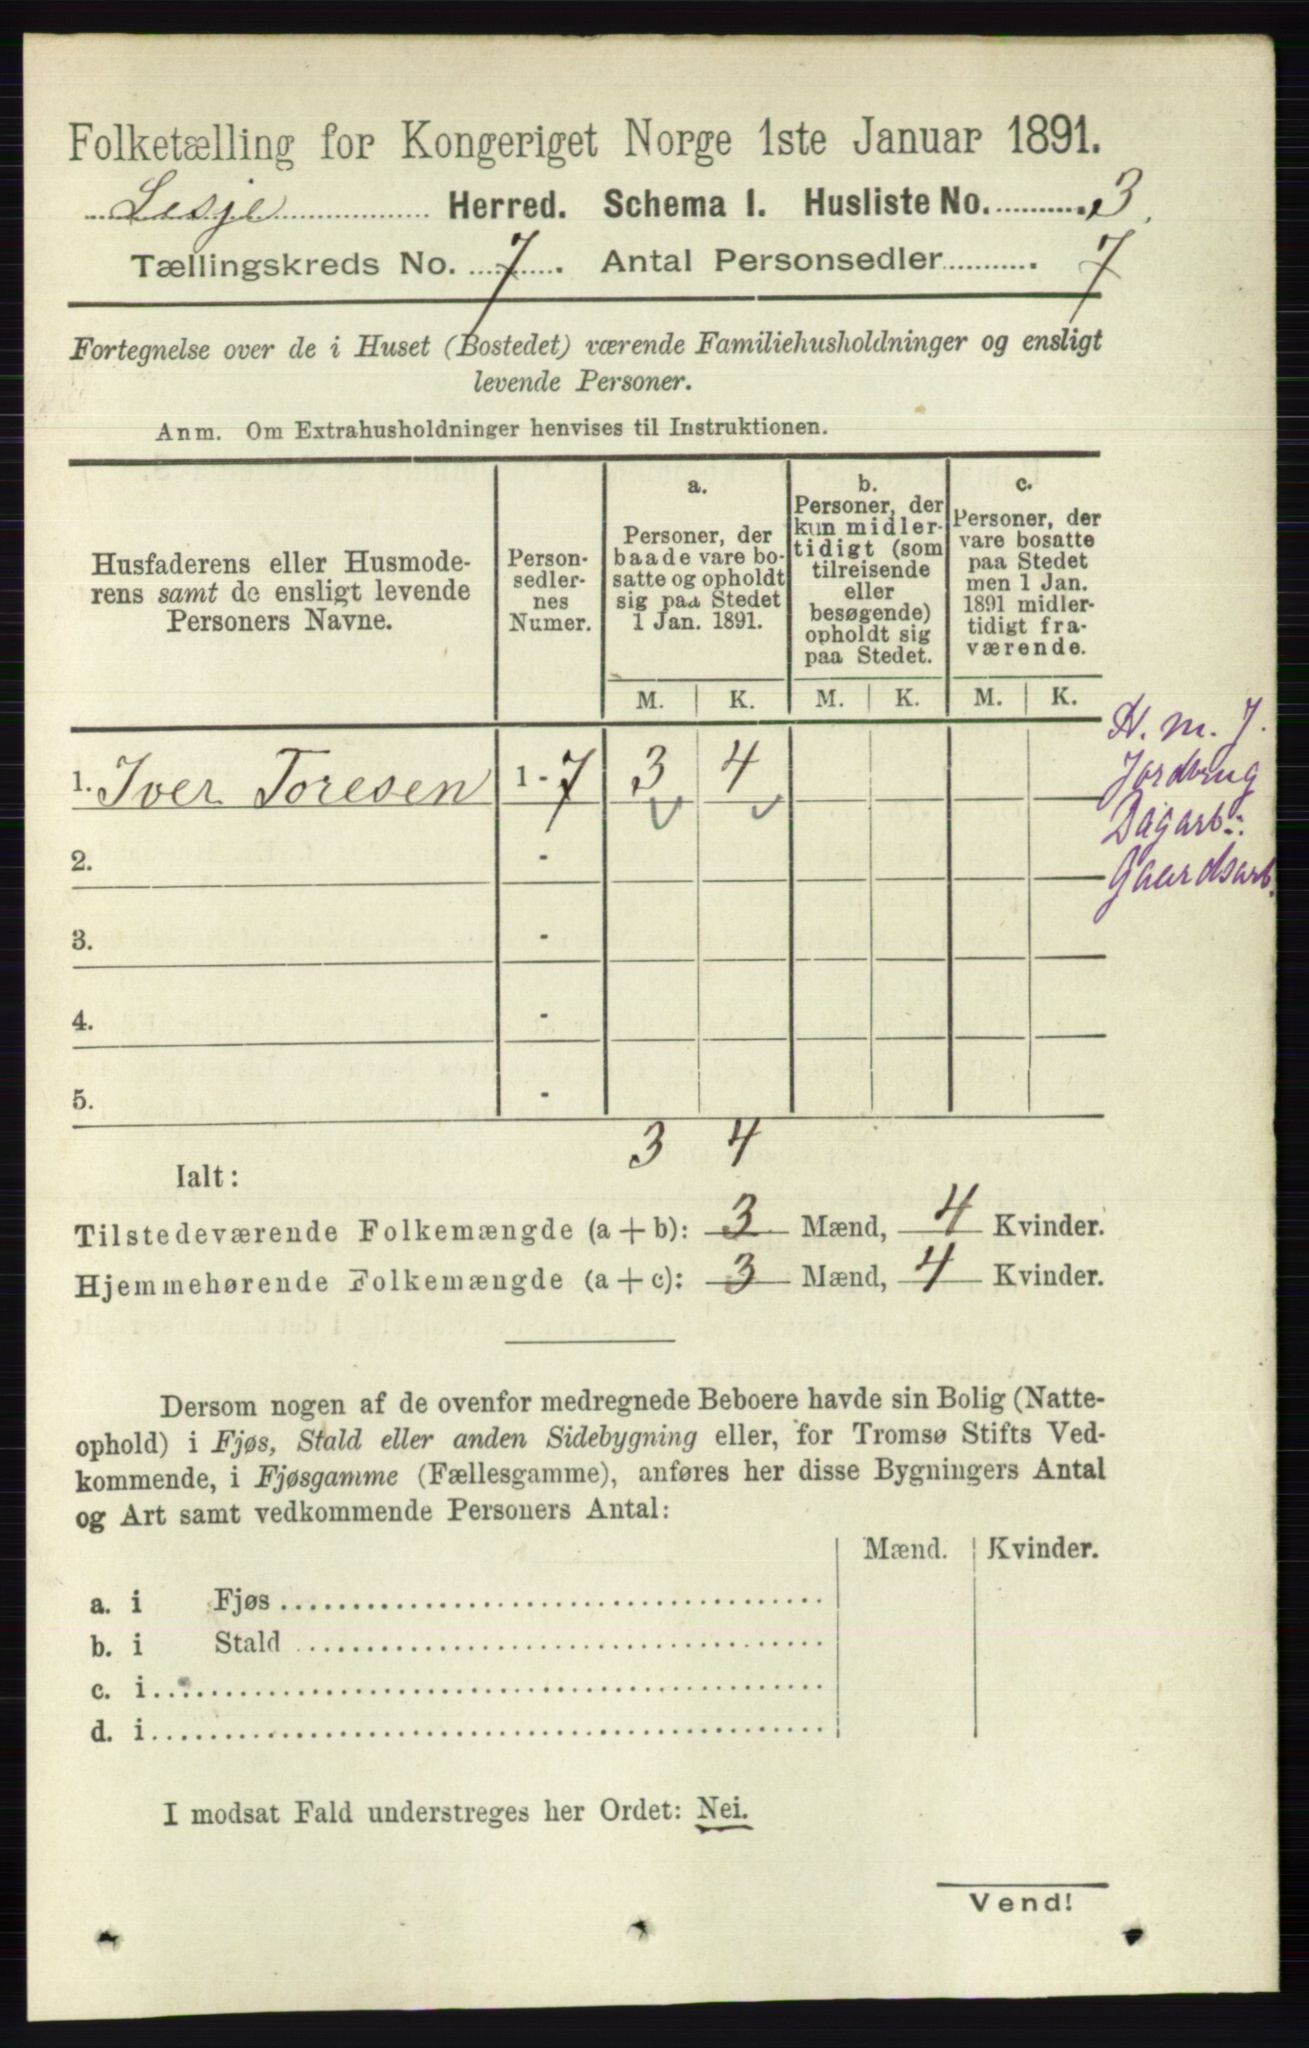 Folketælling for Kongeriget Norge 1ste Januar 1891.
Lesje Herred. Schema I. Husliste No. 3.
Tællingskreds No. 7. Antal Personsedler. 7
Fortegnelse over de i Huset (Bostedet) værende Familiehusholdninger og ensligt
levende Personer.
Anm. Om Extrahusholdninger henvises til Instruktionen.
Husfaderens eller Husmode-
rens samt de ensligt levende
Personers Navne.
Person-
sedler-
nes
Numer.
a.
Personer, der
baade vare bo-
satte og opholdt
sig paa Stedet
1 Jan. 1891.
b.
Personer, der
kun midler-
tidigt (som
tilreisende
eller
besøgende)
opholdt sig
paa Stedet.
c.
Personer, der
vare bosatte
paa Stedet
men 1 Jan.
1891 midler-
tidigt fra-
værende.
M. K. M. K. M. K.
1. Iver Toresen 1 - 7 3 4
H. m. J.
Jordbrug
Dagarb.
Gaardsarb.
2. -
3. -
4. -
5. -
3 4
Ialt:
Tilstedeværende Folkemængde (a + b): 3 Mænd, 4 Kvinder.
Hjemmehørende Folkemængde (a + c): 3 Mænd, 4 Kvinder.
Dersom nogen af de ovenfor medregnede Beboere havde sin Bolig (Natte-
ophold) i Fjøs, Stald eller anden Sidebygning eller, for Tromsø Stifts Ved-
kommende, i Fjøsgamme (Fællesgamme), anføres her disse Bygningers Antal
og Art samt vedkommende Personers Antal:
Mænd. Kvinder.
a. i Fjøs
b. i Stald
c. i
d. i
I modsat Fald understreges her Ordet: Nei.
Vend!